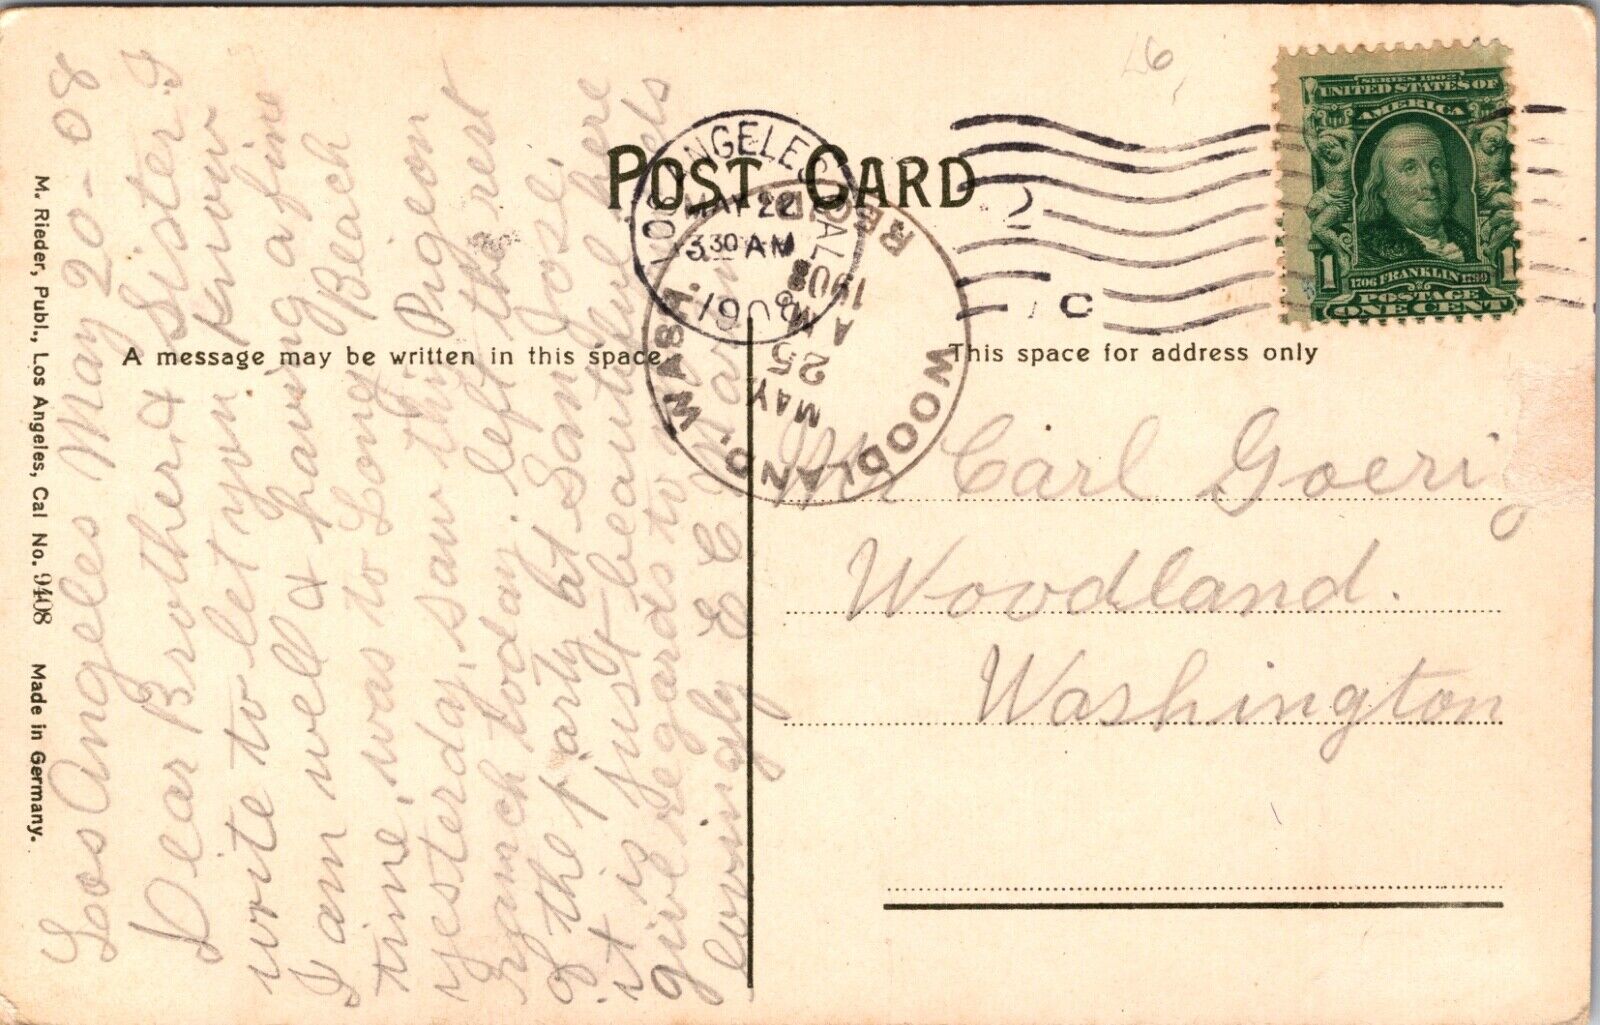 POST CARD
A message may be written in this space
This space for address only
M. Rieder, Publ., Los Angeles, Cal No. 9408 Made in Germany.
Los Angeles May 20-08
Dear Brother & Sister I
write to let you know
I am well & having a fine
time, was to Long Beach
yesterday, saw this Pigeon
ranch today. left the rest
of the party at San Jose,
it is just beautiful here
give regards to
lovingly E C
Mr Carl Goering
Woodland.
Washington
LOS ANGELES, CAL
MAY 22
3 30 AM
1908
WOODLAND, WASH.
MAY
25
AM
1908
REC'D.
2
C
SERIES 1902
UNITED STATES OF
AMERICA
1706 FRANKLIN 1790
POSTAGE
1 ONE CENT 1